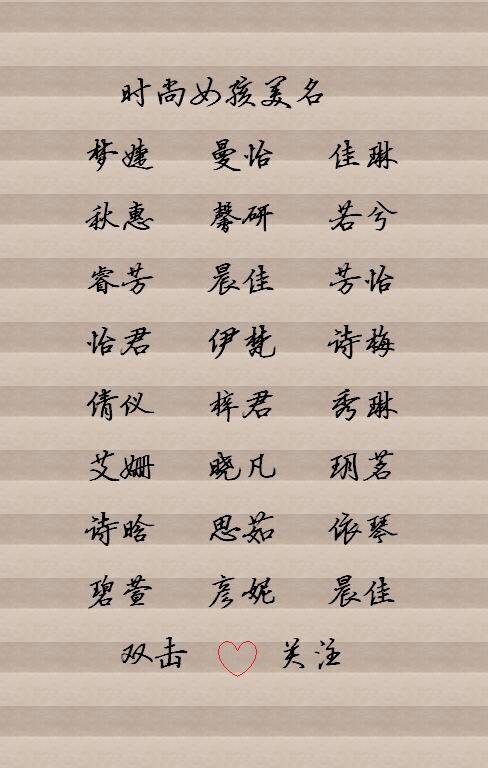 时尚女孩美名
梦婕 曼怡 佳琳
秋惠 馨研 若兮
睿芳 晨佳 芳怡
怡君 伊梵 诗梅
倩仪 梓君 秀琳
艾姗 晓凡 玥茗
诗晗 思茹 依琴
碧萱 彦妮 晨佳
双击 关注